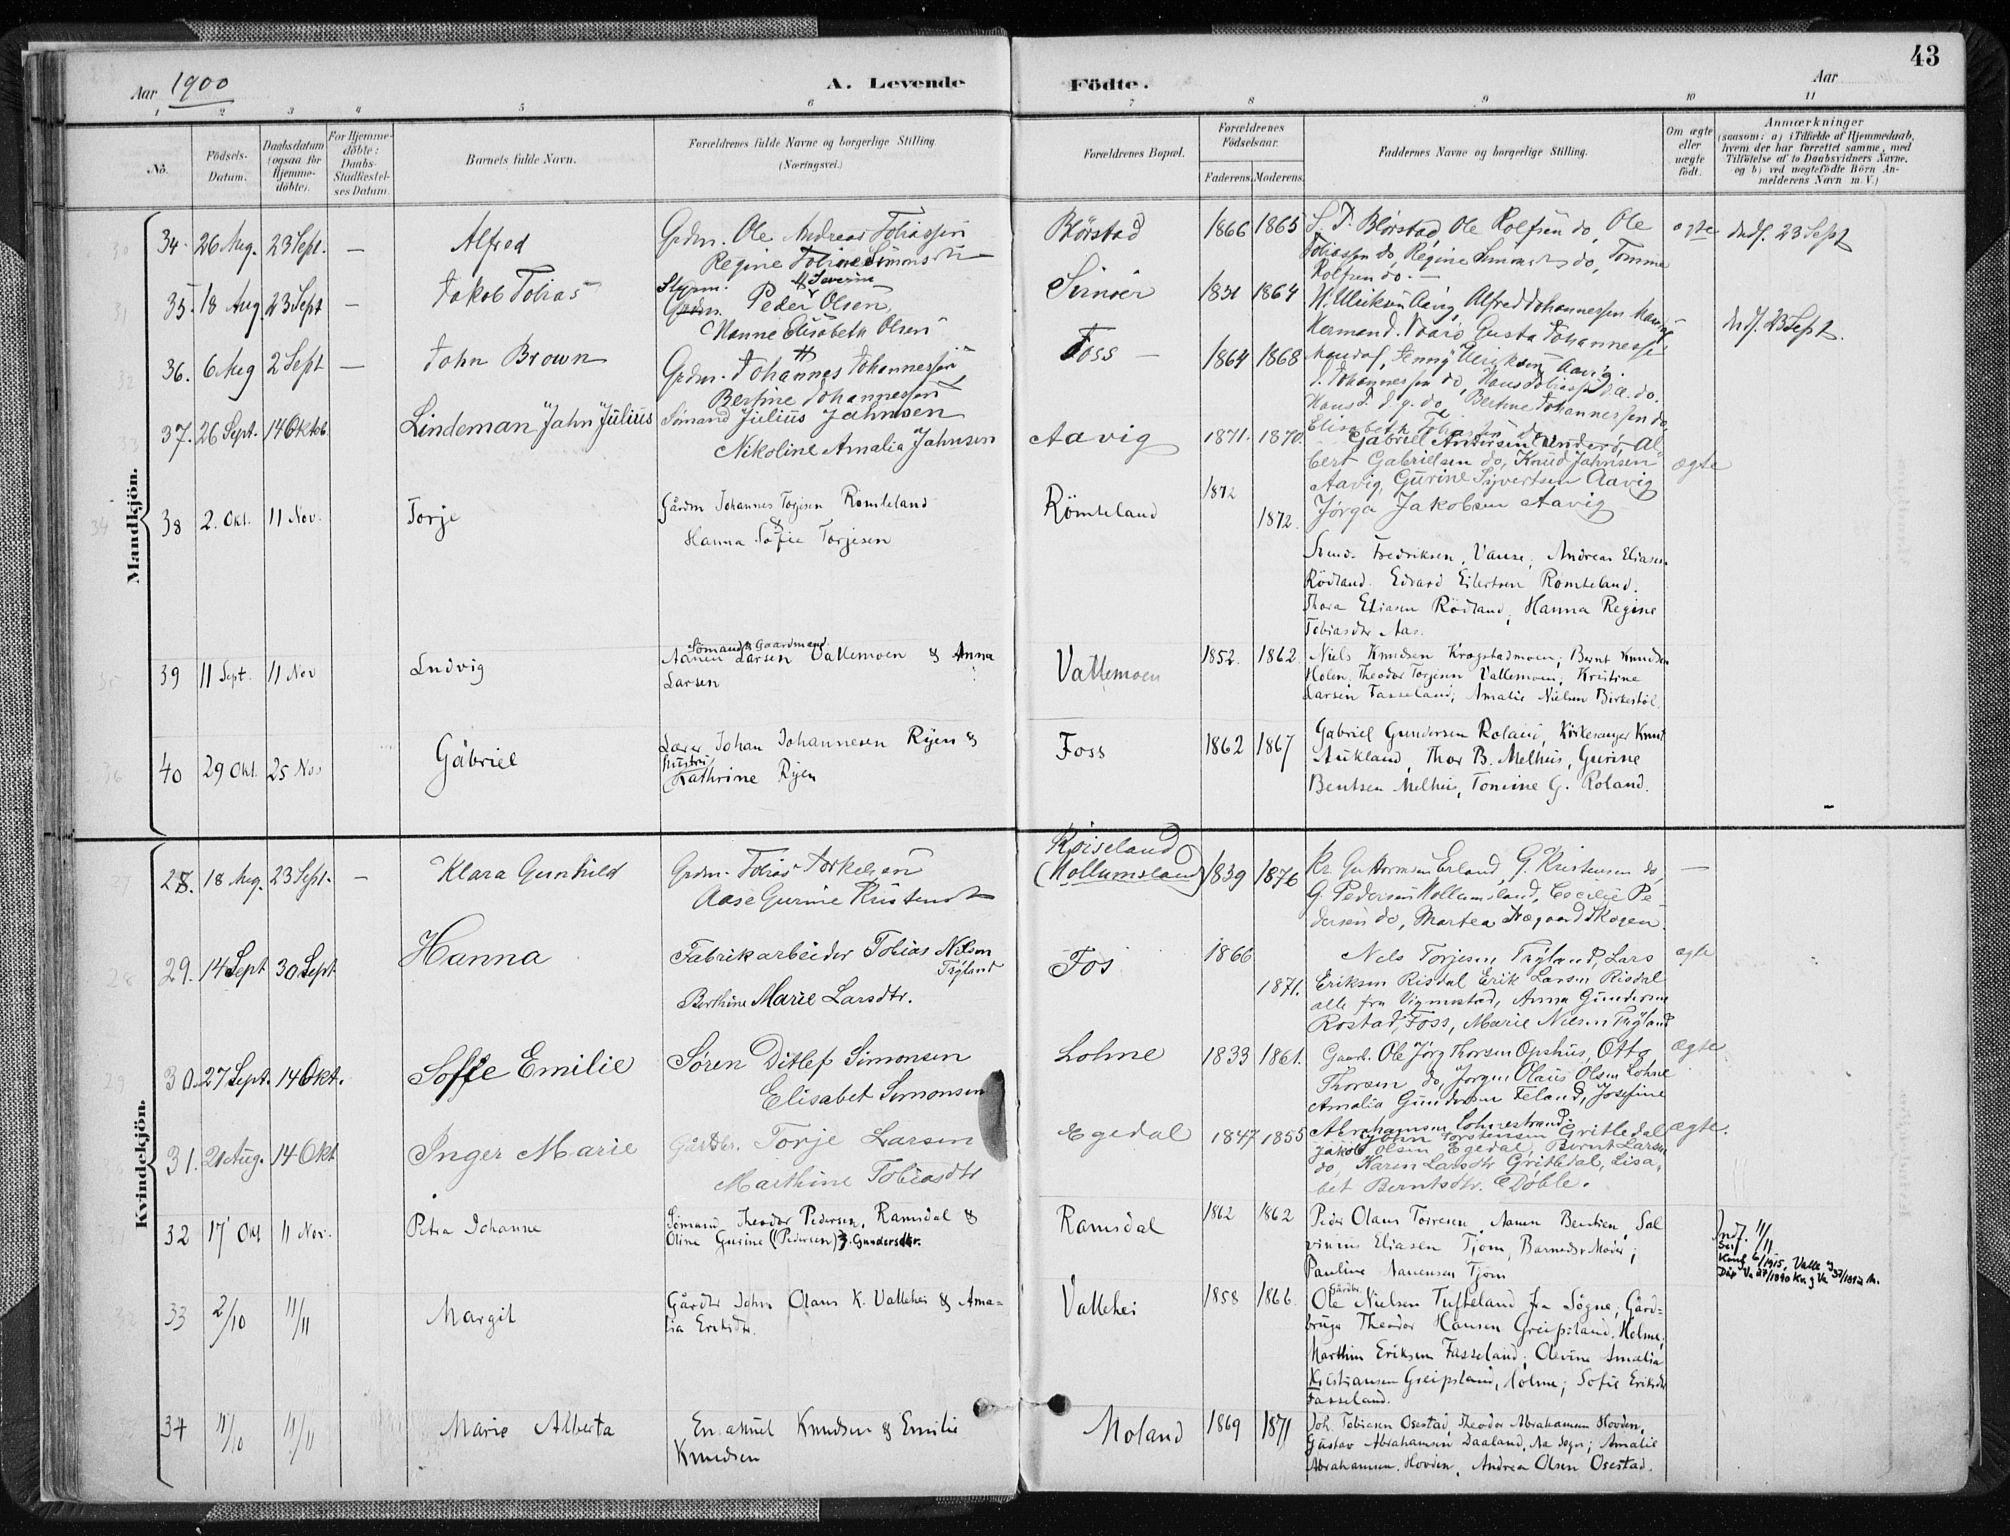 43
Aar 1900
A. Levende
Födte.
Aar
1 2 3 4 5 6 7 8 9 10 11
No.
Födsels-Datum.
Daabsdatum (ogsaa for Hjemmedöbte).
For Hjemmedöbte: Daabs-Stadfæstelses Datum.
Barnets fulde Navn.
Forældrenes fulde Navne og borgerlige Stilling. (Næringsvei.)
Forældrenes Bopæl.
Forældrenes Födselsaar.
Faderens. Moderens.
Faddernes Navne og borgerlige Stilling.
Om ægte eller uægte födt.
Anmærkninger
(saasom: a) i Tilfælde af Hjemmedaab, hvem der har forrettet samme, med Tilföielse af to Daabsvidners Navne, og b) ved uægtefödte Börn Anmelderens Navn m. V.)
Mandkjön.
34. 26 Aug. 23 Sept. — Alfred
Grdm. Ole Andreas Tobiassen
Regine Tobine Simonsdtr
Blörstad 1866 1865
Blörstad, Ole Rolfsen do, Ole
Tobiassen do, Regine Simonsdtr do, Tomme
Rolfsen do. —
ægte
indf. 23 Sept
35. 18 Aug. 23 Sept — Jakob Tobias
Styrm. Severin
Grdm. Peder Olsen,
Hanne Elisabeth Olsen
1864
Alfred Johannessen Mandal
Gusta Johannessen
Mandal, Jenny Ulriksen Aavig.
indf. 23 Sept.
36. 6 Aug 2 Sept — John Brown
Grdm. Johannes Johannessen
Bertine Johannessen
Foss — 1864 1868
J. Johannessen do, Hans Tobiassen d.a. do.
Hans T. d. y. do, Bertine Johannessen do,
Elisabeth
37. 26 Sept. 14 Oktob. Lindeman "Jahn" Julius
Sömand Julius Jahnsen
Nikoline Amalia Jahnsen
Aavig 1871. 1870.
Gabriel Andersen Underö, Al-
bert Gabrielsen do, Knud Jahnsen
Aavig, Gurine Syvertsen Aavig
Jörga Jakobsen Aavig
ægte
38 2. Okt. 11 Nov. Torje
Gårdm Johannes Torjesen Romteland
Hanna Sofie Torjesen
Römteland 1872 1872.
Fredriksen, Vanse; Andreas Eliasen
Rödland. Edvard Eilertsen Romteland.
Thora Eliasen Rödland, Hanna Regine
Tobiasdtr Aas.
39 11 Sept. 11 Nov Ludvig
Sömand & Gaardmand
Aanen Larsen Vallemoen & Anna
Larsen
Vallemoen 1852. 1862.
Niels Knudsen Krogstadmoen; Bernt Knudsen
Holen, Theodor Torjesen Vallemoen; Kristine
Larsen Fasseland; Amalie Nielsen Birkestöl.
40 29 Okt. 25 Nov Gabriel
Lærer Johan Johannesen Ryen &
hustru
Kathrine Ryen
Foss 1862 1867
Gabriel Gundersen Roland, Kirkesanger Knut
Aukland, Thor B. Melhus, Gurine
Bentsen Melhus, Tomine G. Roland.
Kvindekjön.
28. 18 Aug. 23 Sept. — Klara Gunhild
Grdm. Tobias Torkelsen
Aase Gurine Kristensdtr
Röiseland
(Mollumsland) 1839 1876
Kr. Guttormsen Erland, G. Kristensen do,
G. Pedersen Mollumsland, Cecilie Pe-
dersen do, Martea Skogen.
—
29. 14 Sept 30 Sept. Hanna
Fabrikarbeider Tobias Nilsen
Tryland
Berthine Marie Larsdtr.
Fos 1866 1871.
Nels Torjesen Tryland, Lars
Eriksen Risdal Erik Larsen Risdal
alle fra Vigmostad, Anna Gundersen
Rostad, Foss, Marie Nilsen Tryland
ægte
30. 27 Sept. 14 Okt. Soffie Emilie
Sören Ditlef Simonsen
Elisabet Simonsen
Lohne 1833 1861.
Gaarb. Ole Jörg Thorsen Opshus, Otto
Thorsen do, Jörgen Olaus Olsen Lohne
Amalia Gundersen Feland, Josefine
Abrahamsen Lohnestrand
ægte
31. 21 Aug. 14 Okt Inger Marie
Gårdbr. Torje Larsen
Marthine Tobiasdtr
Egedal 1847 1855
John Torstensen Gritledal
Jakob Olsen Egedal, Bernt Larsen
do, Karen Larsdtr Gritledal, Lisa-
bet Berntsdtr. Döble.
ægte.
32 17 Okt 11 Nov. Petra Johanne
Sömand Theodor Pedersen, Ramsdal &
Oline Gurine (Pedersen) f. Gundersdtr.
Ramsdal 1862 1862
Peder Olaus Torresen, Aanen Bentsen, Sal
vinius Eliasen Tjom, Barnets Moder;
Pauline Aanensen Tjom
Indf. 11/11
33 2/10 11/11 Margit
Gårdbr John Olaus K. Vallehei & Ama-
lia Eriksdtr.
Vallehei 1858 1866.
Gårdbr
Ole Nielsen Tufteland fra Sögne; Gård-
bruger Theodor Hansen Greipsland, Holme;
Marthin Eriksen Fasseland; Olevine Amalia
Kristiansen Greipsland, Holme; Sofie Eriksdtr
Fasseland.
34 11/10 11/11 Marie Alberta
Emanuel Knudsen & Emilie
Knudsen
Moland 1869 1871
Joh. Tobiasen Osestad, Theodor Abrahamsen Hovden,
Gustav Abrahamsen Daaland, Amalie
Abrahamsen, Hovden, Andrea Olsen Osestad.